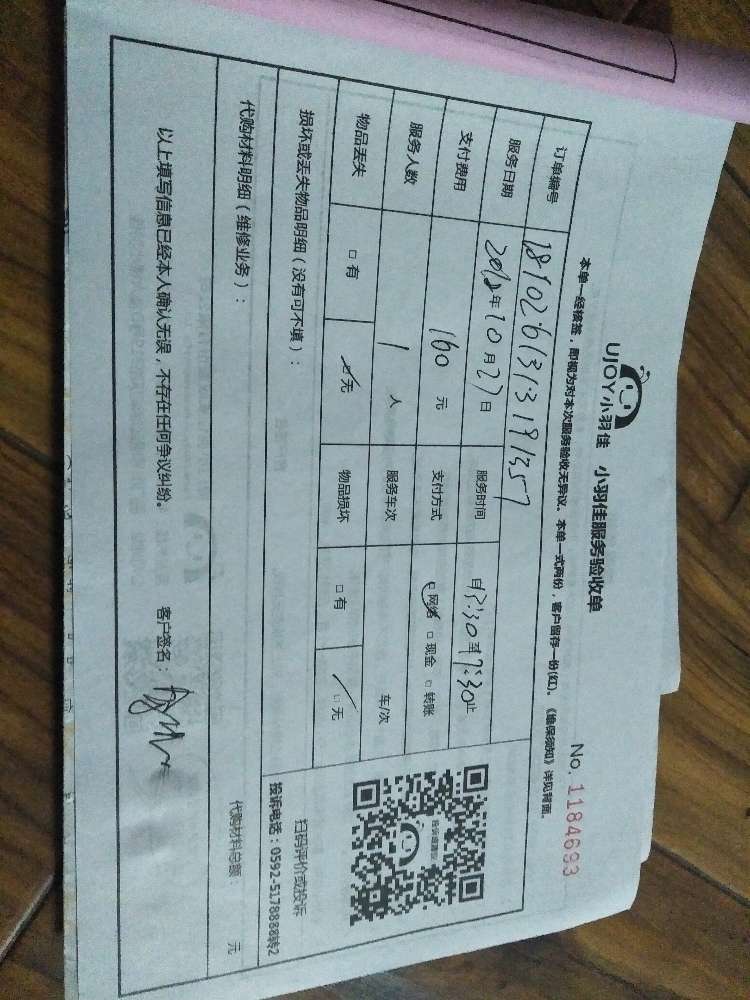 UJOY小羽佳 小羽佳服务验收单
No. 1184693
本单一经核签，即视为对本次服务验收无异议。本单一式两份，客户留存一份(红)。《维保须知》详见背面。
订单编号 1810261313191357
服务日期 2018年10月27日 服务时间
支付费用 160 元 支付方式 网络 □ 现金 □ 转账
服务人数 1 人 服务车次 车/次
物品丢失 □ 有 无 物品损坏 □ 有 □ 无
损坏或丢失物品明细（没有可不填）：
扫码评价或投诉
投诉电话：0592-5178888转2
代购材料明细（维修业务）： 代购材料总额： 元
以上填写信息已经本人确认无误，不存在任何争议纠纷。 客户签名：